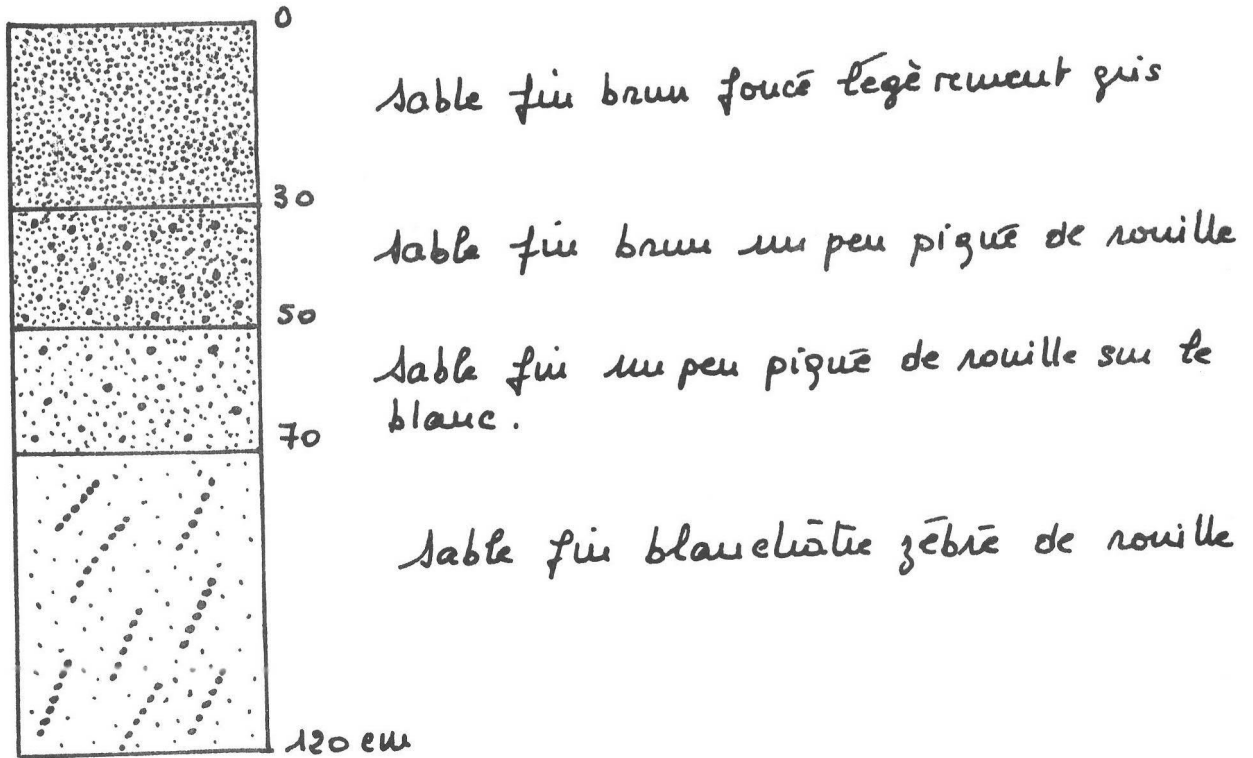 0
sable fin brun foncé légèrement gris
30
sable fin brun un peu piqué de rouille
50
sable fin un peu piqué de rouille sur le
blanc.
70
sable fin blanchâtre zébré de rouille
120 cm